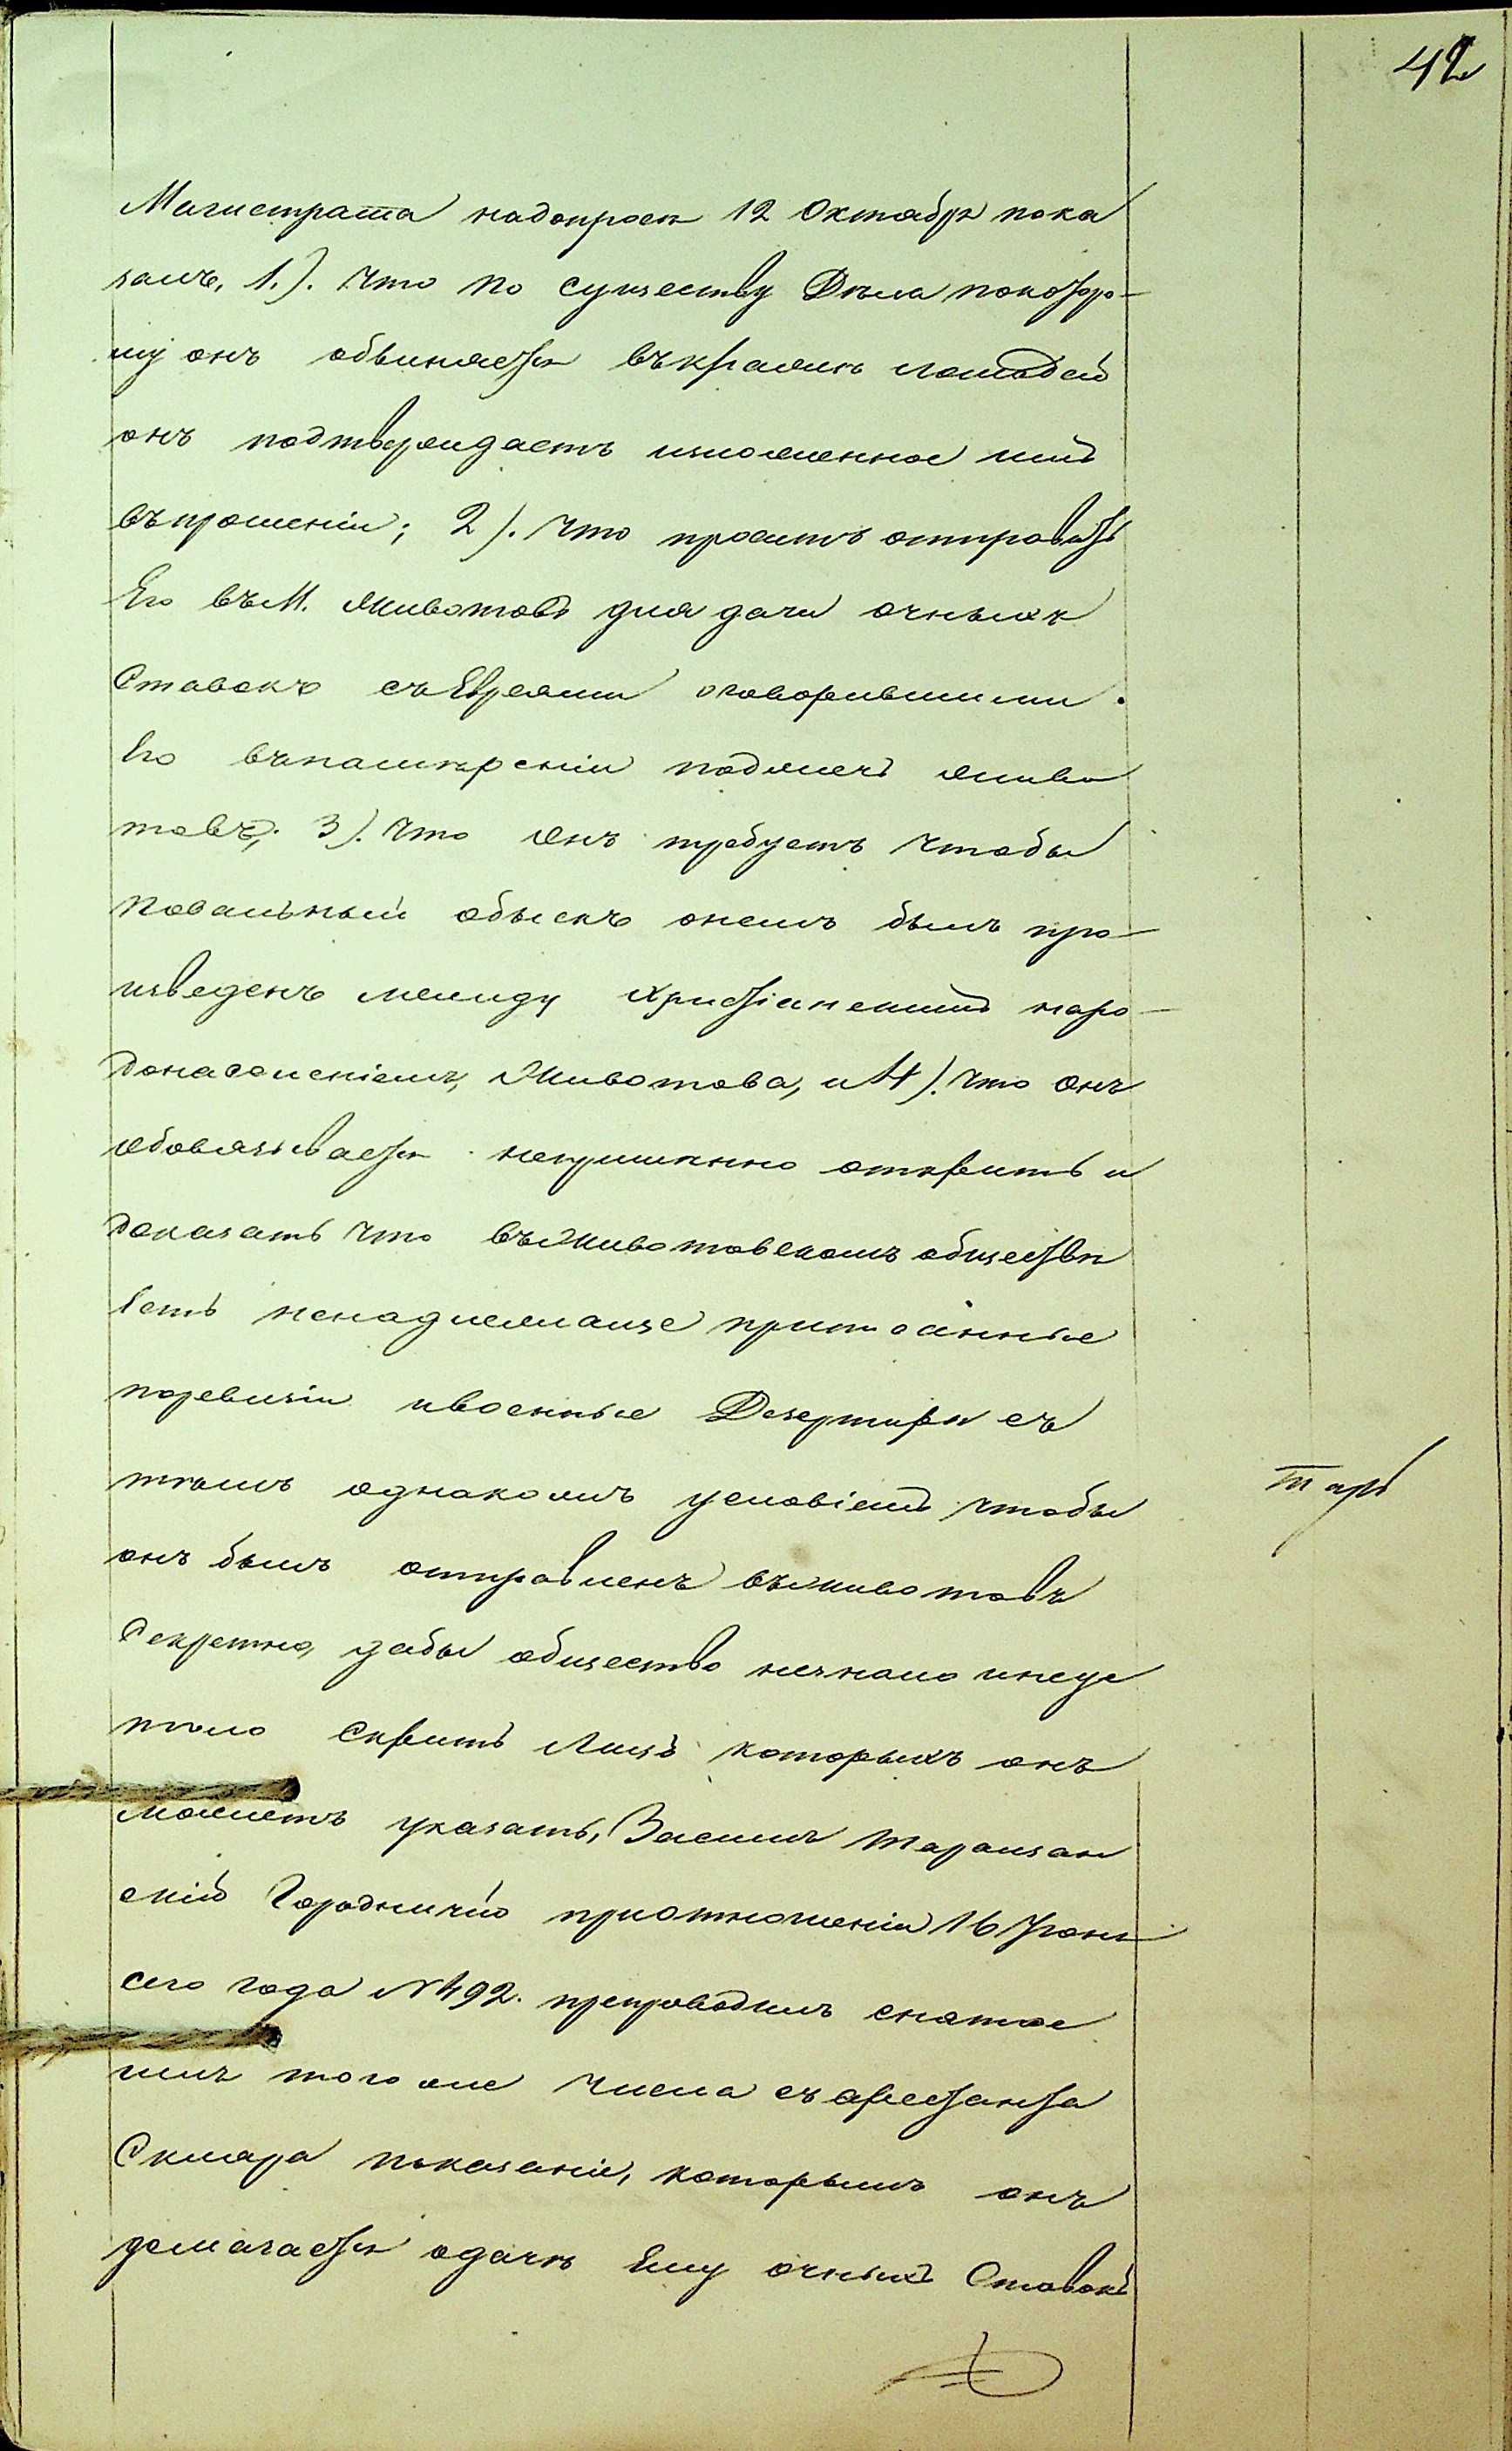 42
Магистрата надопросѣ 12 Октября пока
залъ, 1.). что по существу Дѣла покотро-
му онъ обвиняется въкражѣ лошадей
онъ подтверждаетъ изложенное имъ
въпрошеніи; 2). что проситъ отправить
Его въ М. Животовъ для дачи очныхъ
Ставокъ съ Евреями оговорившими
Его въ подмечъ живо
товъ; 3). что онъ требуетъ чтобы
повальный обыскъ онемъ былъ про-
изведенъ между христіанскимъ наро-
донаселеніемъ, Животова, и 4). что онъ
обовязывается непримѣнно открить и
доказать что въ Животовскомъ обществѣ
Есть ненадлежаще притоинные
поревизіи ивоенные Дезертиры съ
тѣмъ однакожъ условіемъ чтобы
онъ былъ отправленъ въ Животовъ
Секретно, дабы общество незнало инеус
пѣло Скрить Лицъ которыхъ онъ
можетъ указать, Засимъ Таращан
скій Городничій приотношеніи 16 Июня
сего года № 492. препроводилъ снятое
имъ того же числа съ арестанта
Скляра показаніе, которымъ онъ
домагается одачѣ Ему очныхъ Ставокъ